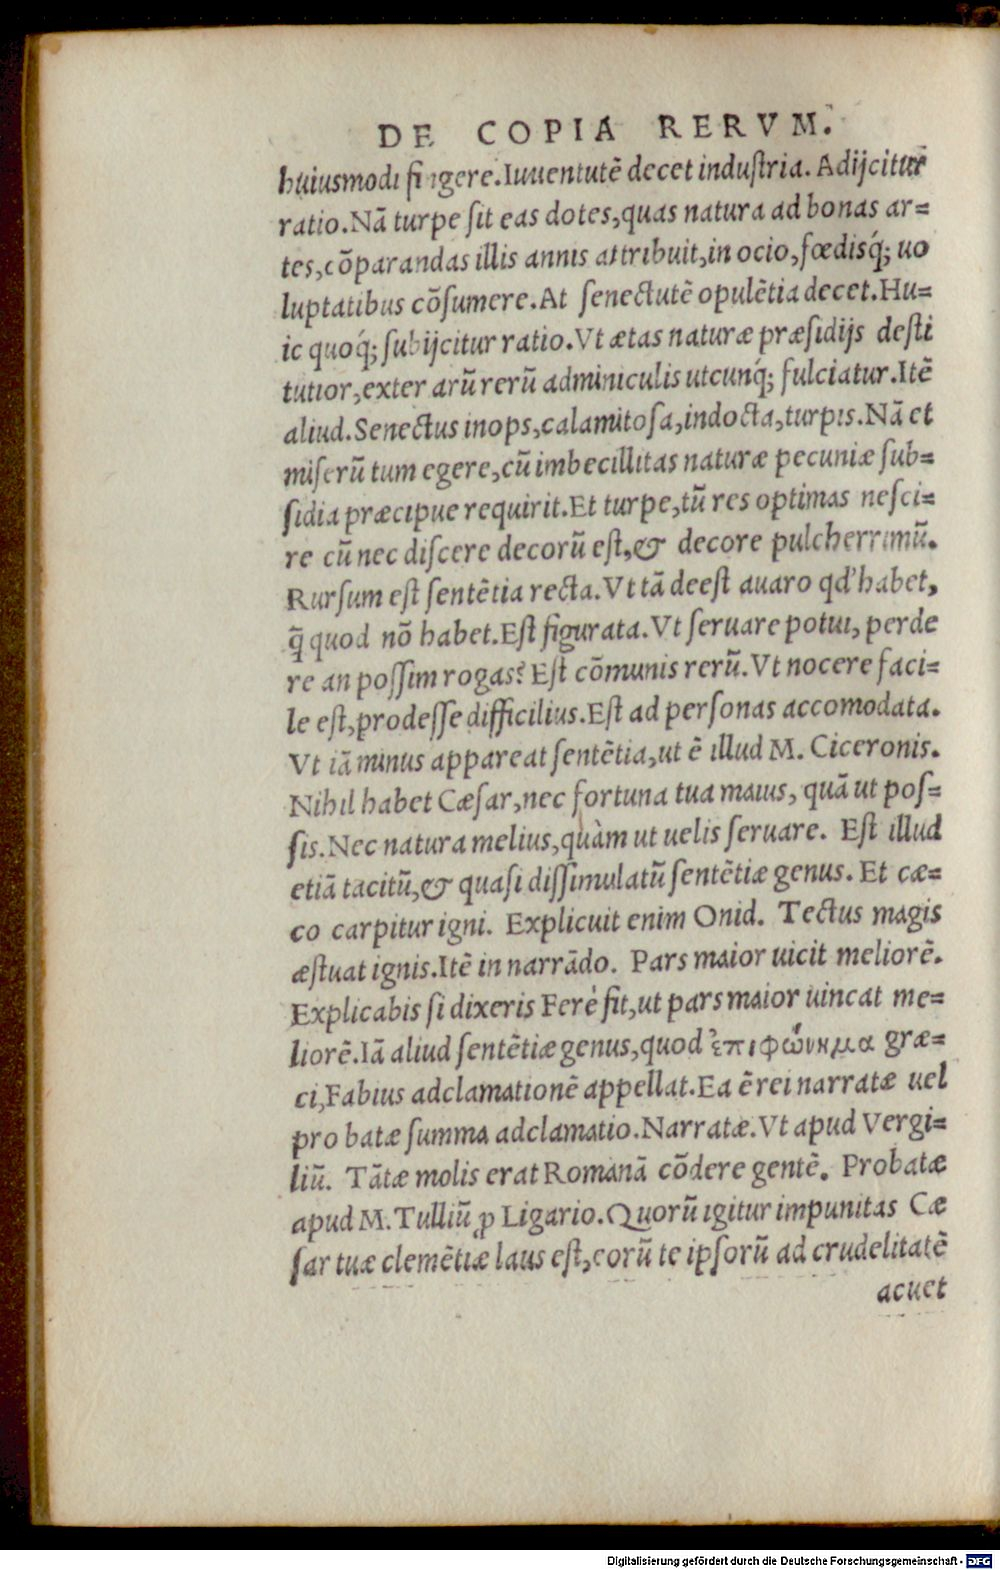 DE COPIA RERVM.
huiusmodi fingere. Iuuentutẽ decet industria. Adijcitur
ratio. Nã turpe sit eas dotes, quas natura ad bonas ar=
tes, cõparandas illis annis attribuit, in ocio, fœdisq́; uo
luptatibus cõsumere. At senectutẽ opulẽtia decet. Hu=
ic quoq́; subijcitur ratio. Vt ætas naturæ præsidijs desti
tutior, exter arũ rerũ adminiculis utcunq́; fulciatur. Itẽ
aliud. Senectus inops, calamitosa, indocta, turpis. Nã et
miserũ tum egere, cũ imbecillitas naturæ pecuniæ sub=
sidia præcipue requirit. Et turpe, tũ res optimas nesci=
re cũ nec discere decorũ est, & decore pulcherrimũ.
Rursum est sentẽtia recta. Vt tã deest auaro qd' habet,
q̃ quod nõ habet. Est figurata. Vt seruare potui, perde
re an possim rogas? Est cõmunis rerũ. Vt nocere faci=
le est, prodesse difficilius. Est ad personas accomodata.
Vt iã minus appareat sentẽtia, ut ẽ illud M. Ciceronis.
Nihil habet Cæsar, nec fortuna tua maius, quã ut pos=
sis. Nec natura melius, quàm ut uelis seruare. Est illud
etiã tacitũ, & quasi dissimulatũ sentẽtiæ genus. Et cæ=
co carpitur igni. Explicuit enim Onid. Tectus magis
æstuat ignis. Itẽ in narrãdo. Pars maior uicit meliorẽ.
Explicabis si dixeris Ferè fit, ut pars maior uincat me=
liorẽ. Iã aliud sentẽtiæ genus, quod ἐπιφώνημα græ=
ci, Fabius adclamationẽ appellat. Ea ẽ rei narratæ uel
pro batæ summa adclamatio. Narratæ. Vt apud Vergi=
liũ. Tãtæ molis erat Romanã cõdere gentẽ. Probatæ
apud M. Tulliũ ꝓ Ligario. Quorũ igitur impunitas Cæ
sar tuæ clemẽtiæ laus est, eorũ te ipsorũ ad crudelitatẽ
acuet
Digitalisierung gefördert durch die Deutsche Forschungsgemeinschaft - DFG